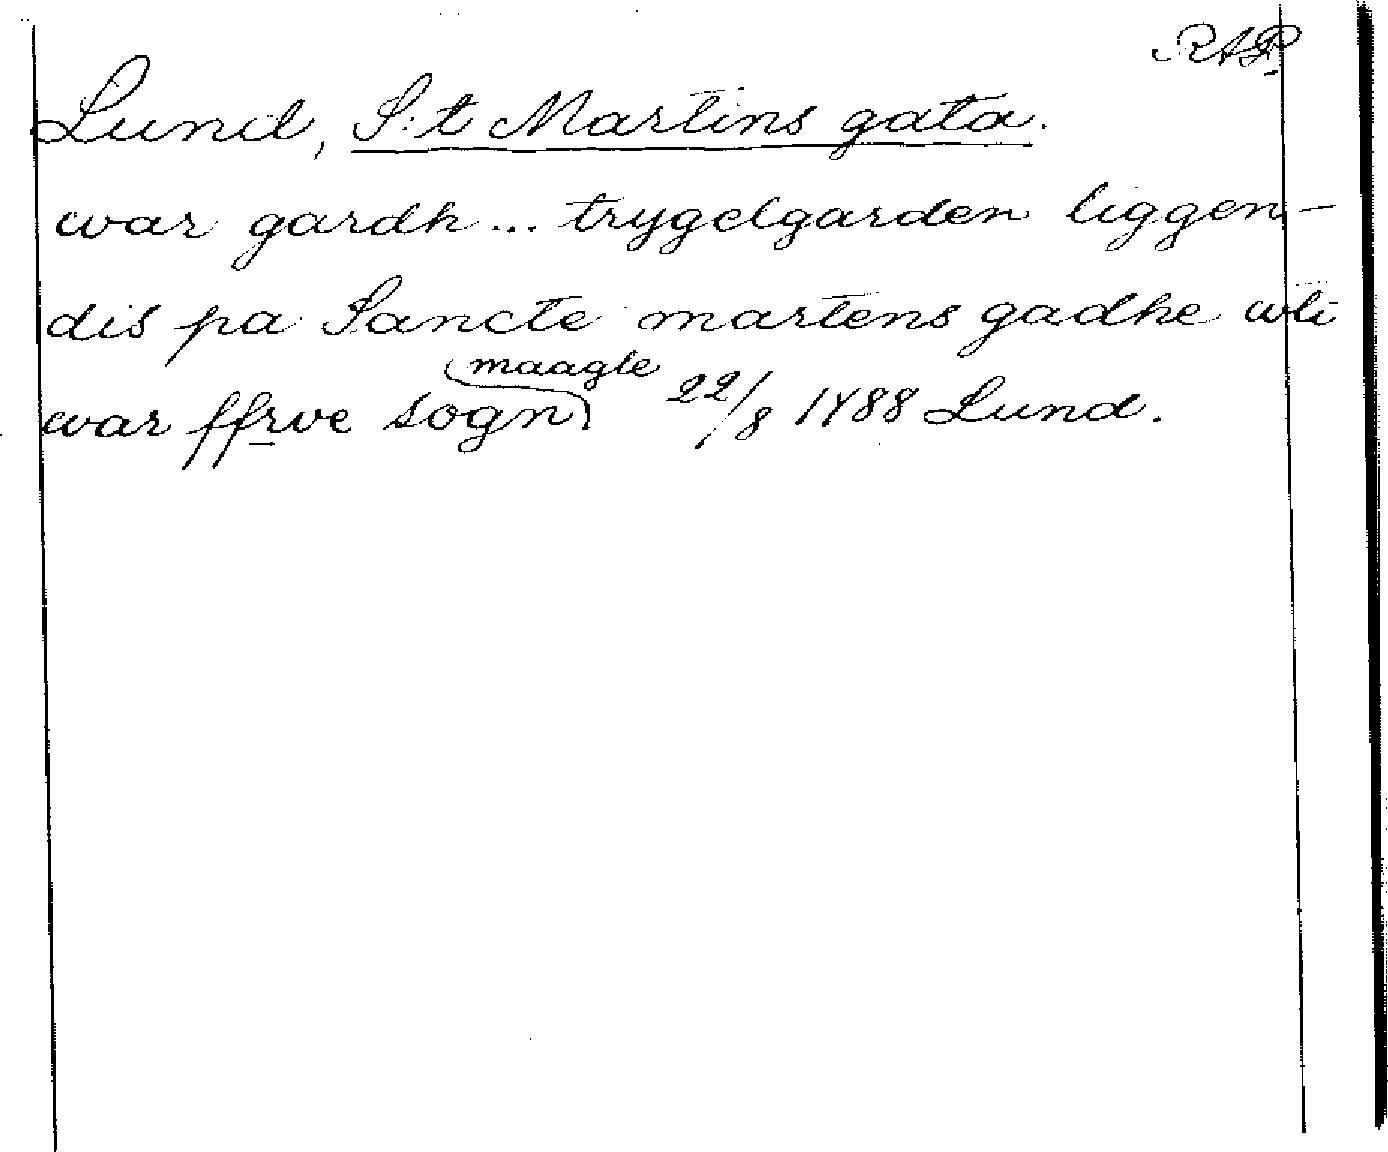 RAP.
Lund, S:t Martins gata.
war gardh... trygelgarden liggen-
dis pa Sancte martens gadhe wti
maagle
war ffrve sogn 22/8 1488 Lund.